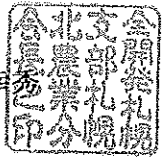 秀
全開発札幌
支部札幌
北農業分
会長之印